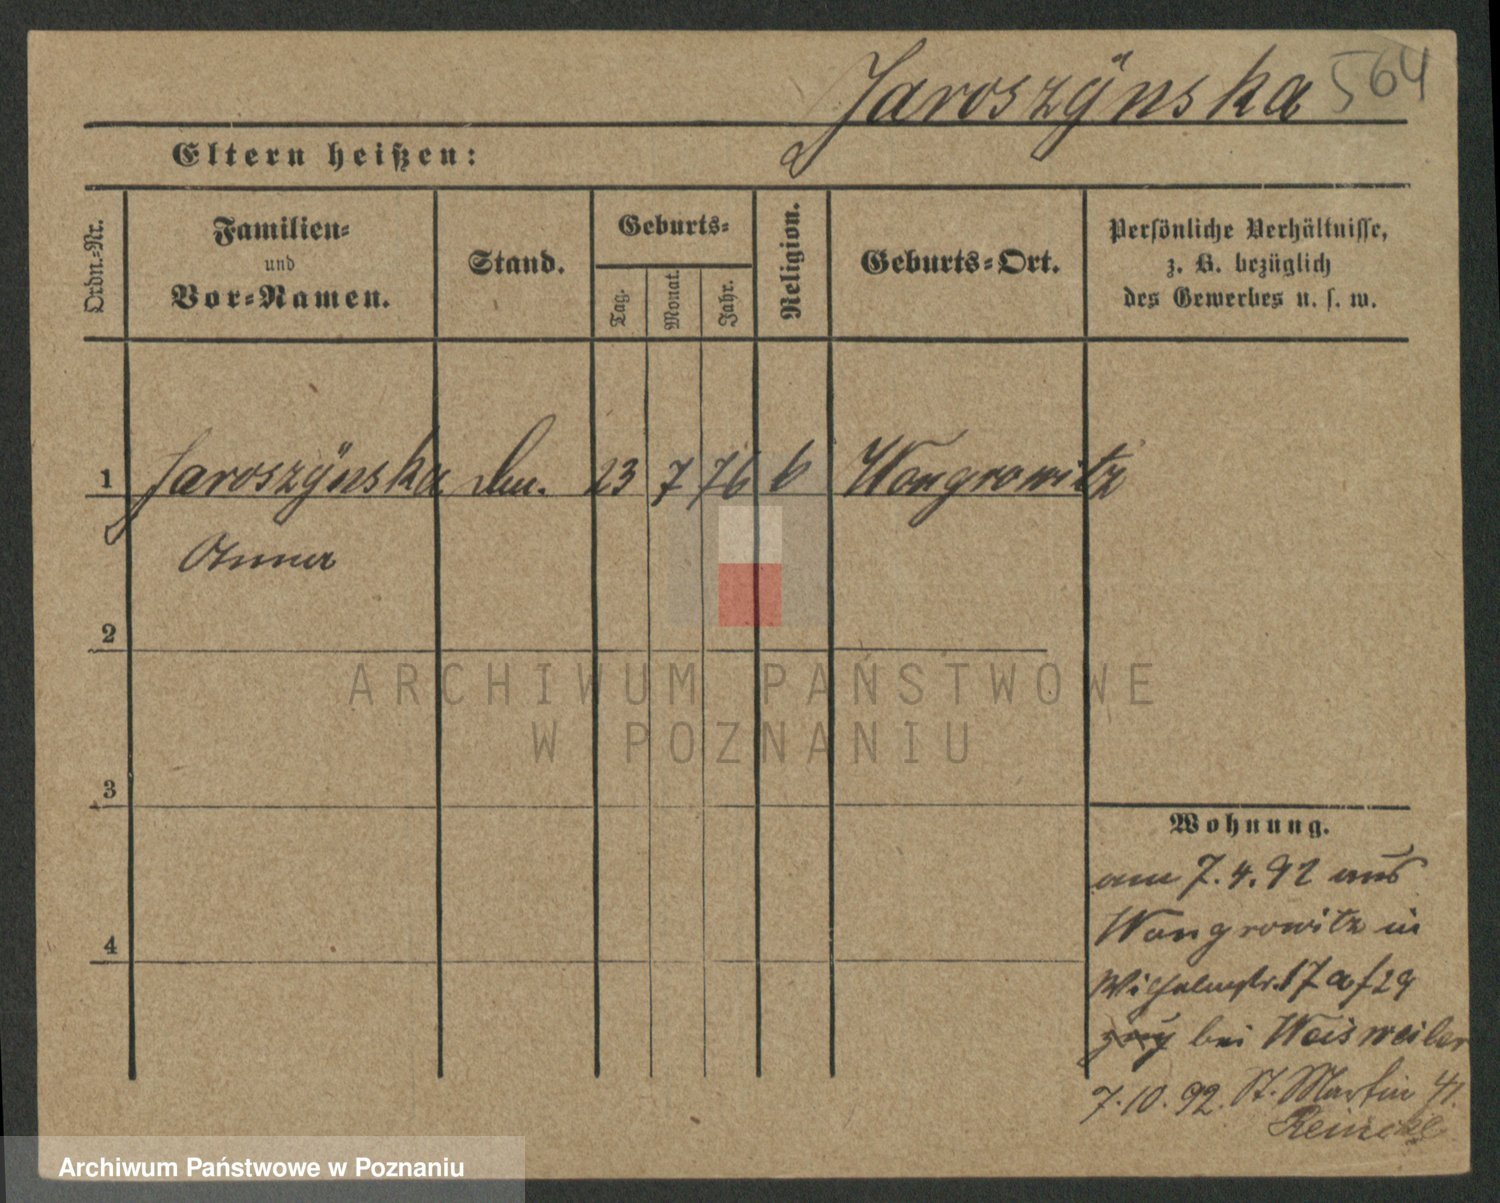 Jaroszÿnska 564
Eltern heißen:
Ordn.-Nr.
Familien-
und
Vor-Namen.
Stand.
Geburts-
Tag.
Monat.
Jahr.
Religion.
Geburts-Ort.
Persönliche Verhältnisse,
z. B. bezüglich
des Gewerbes u. s. w.
1 Jaroszÿnska 23 7 76 Wongrowitz
Anna
2
3
4
Wohnung.
am 7. 4. 92 aus
Wongrowitz in
Wilhelmstr. 17
bei Weisweiler
7. 10. 92. St. Martin 41.
Reincke
ARCHIWUM PAŃSTWOWE
W POZNANIU
Archiwum Państwowe w Poznaniu